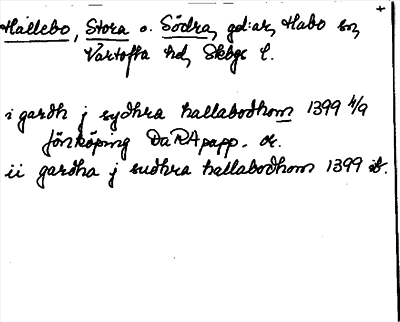 +
Hallebo, Stora o. Södra, gd:ar, Habo sn,
Vartofta hd, Skbgs l.
i gardh j sydhra hallabodhom 1399 4/9
Jönköping DaRApapp. or.
ii gardha j sudhra hallabodhom 1399 ib.